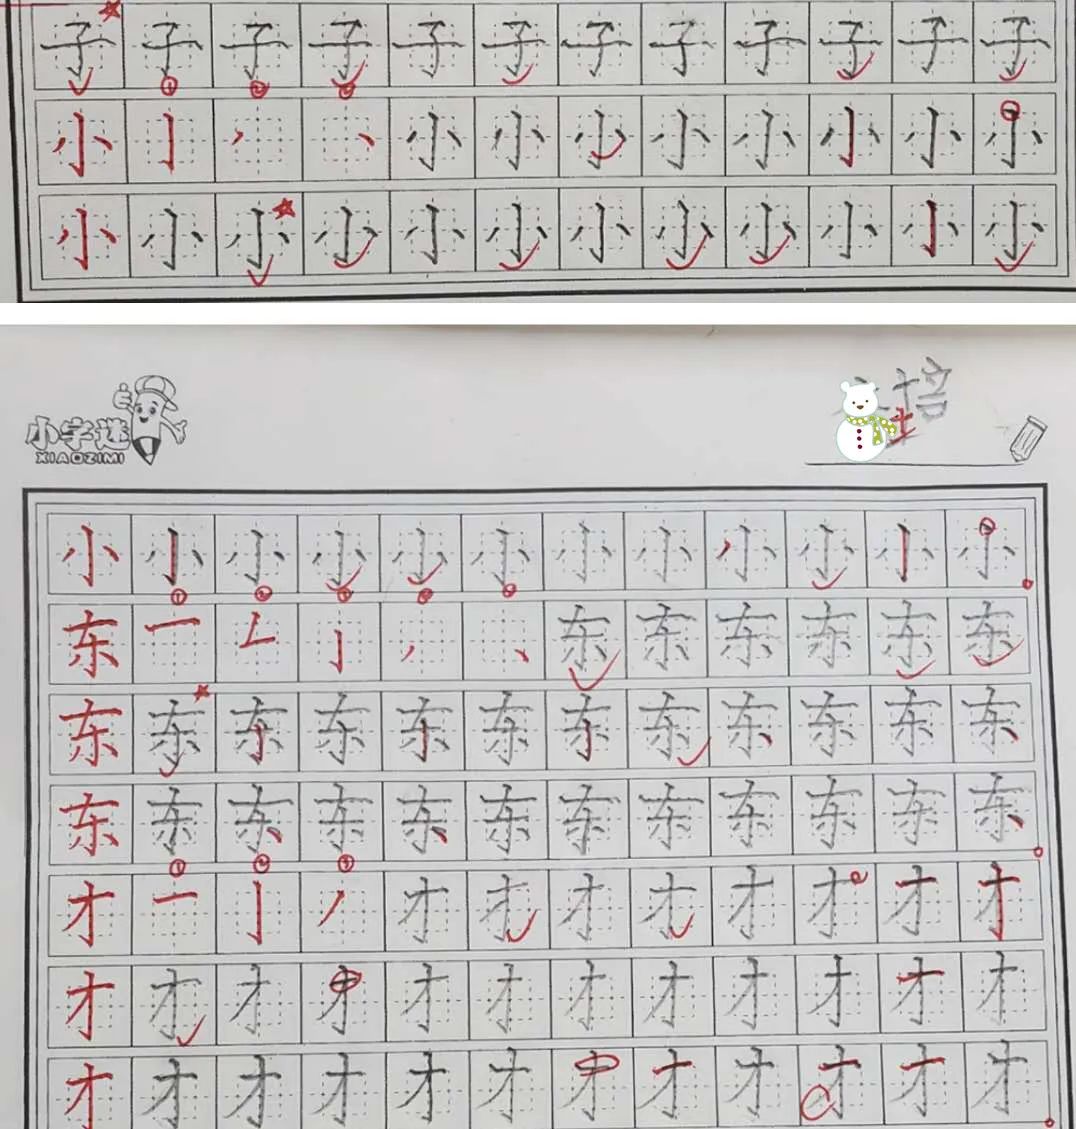 子 子 子 子 子 子 子 子 子 子 子 子
① ② ③
小 亅 丿 丶 小 小 小 小 小 小 小 小
小 小 小 小 小 小 小 小 小 小 小 小
培
小字迷
XIAOZIMI
小 小 小 小 小 小 小 小 小 小 小 小
① ② ③ ④ ⑤
东 一 𠃋 亅 丿 丶 东 东 东 东 东 东
东 东 东 东 东 东 东 东 东 东 东 东
东 东 东 东 东 东 东 东 东 东 东 东
① ② ③
才 一 亅 丿 才 才 才 才 才 才 才 才
才 才 才 才 才 才 才 才 才 才 才 才
才 才 才 才 才 才 才 才 才 才 才 才